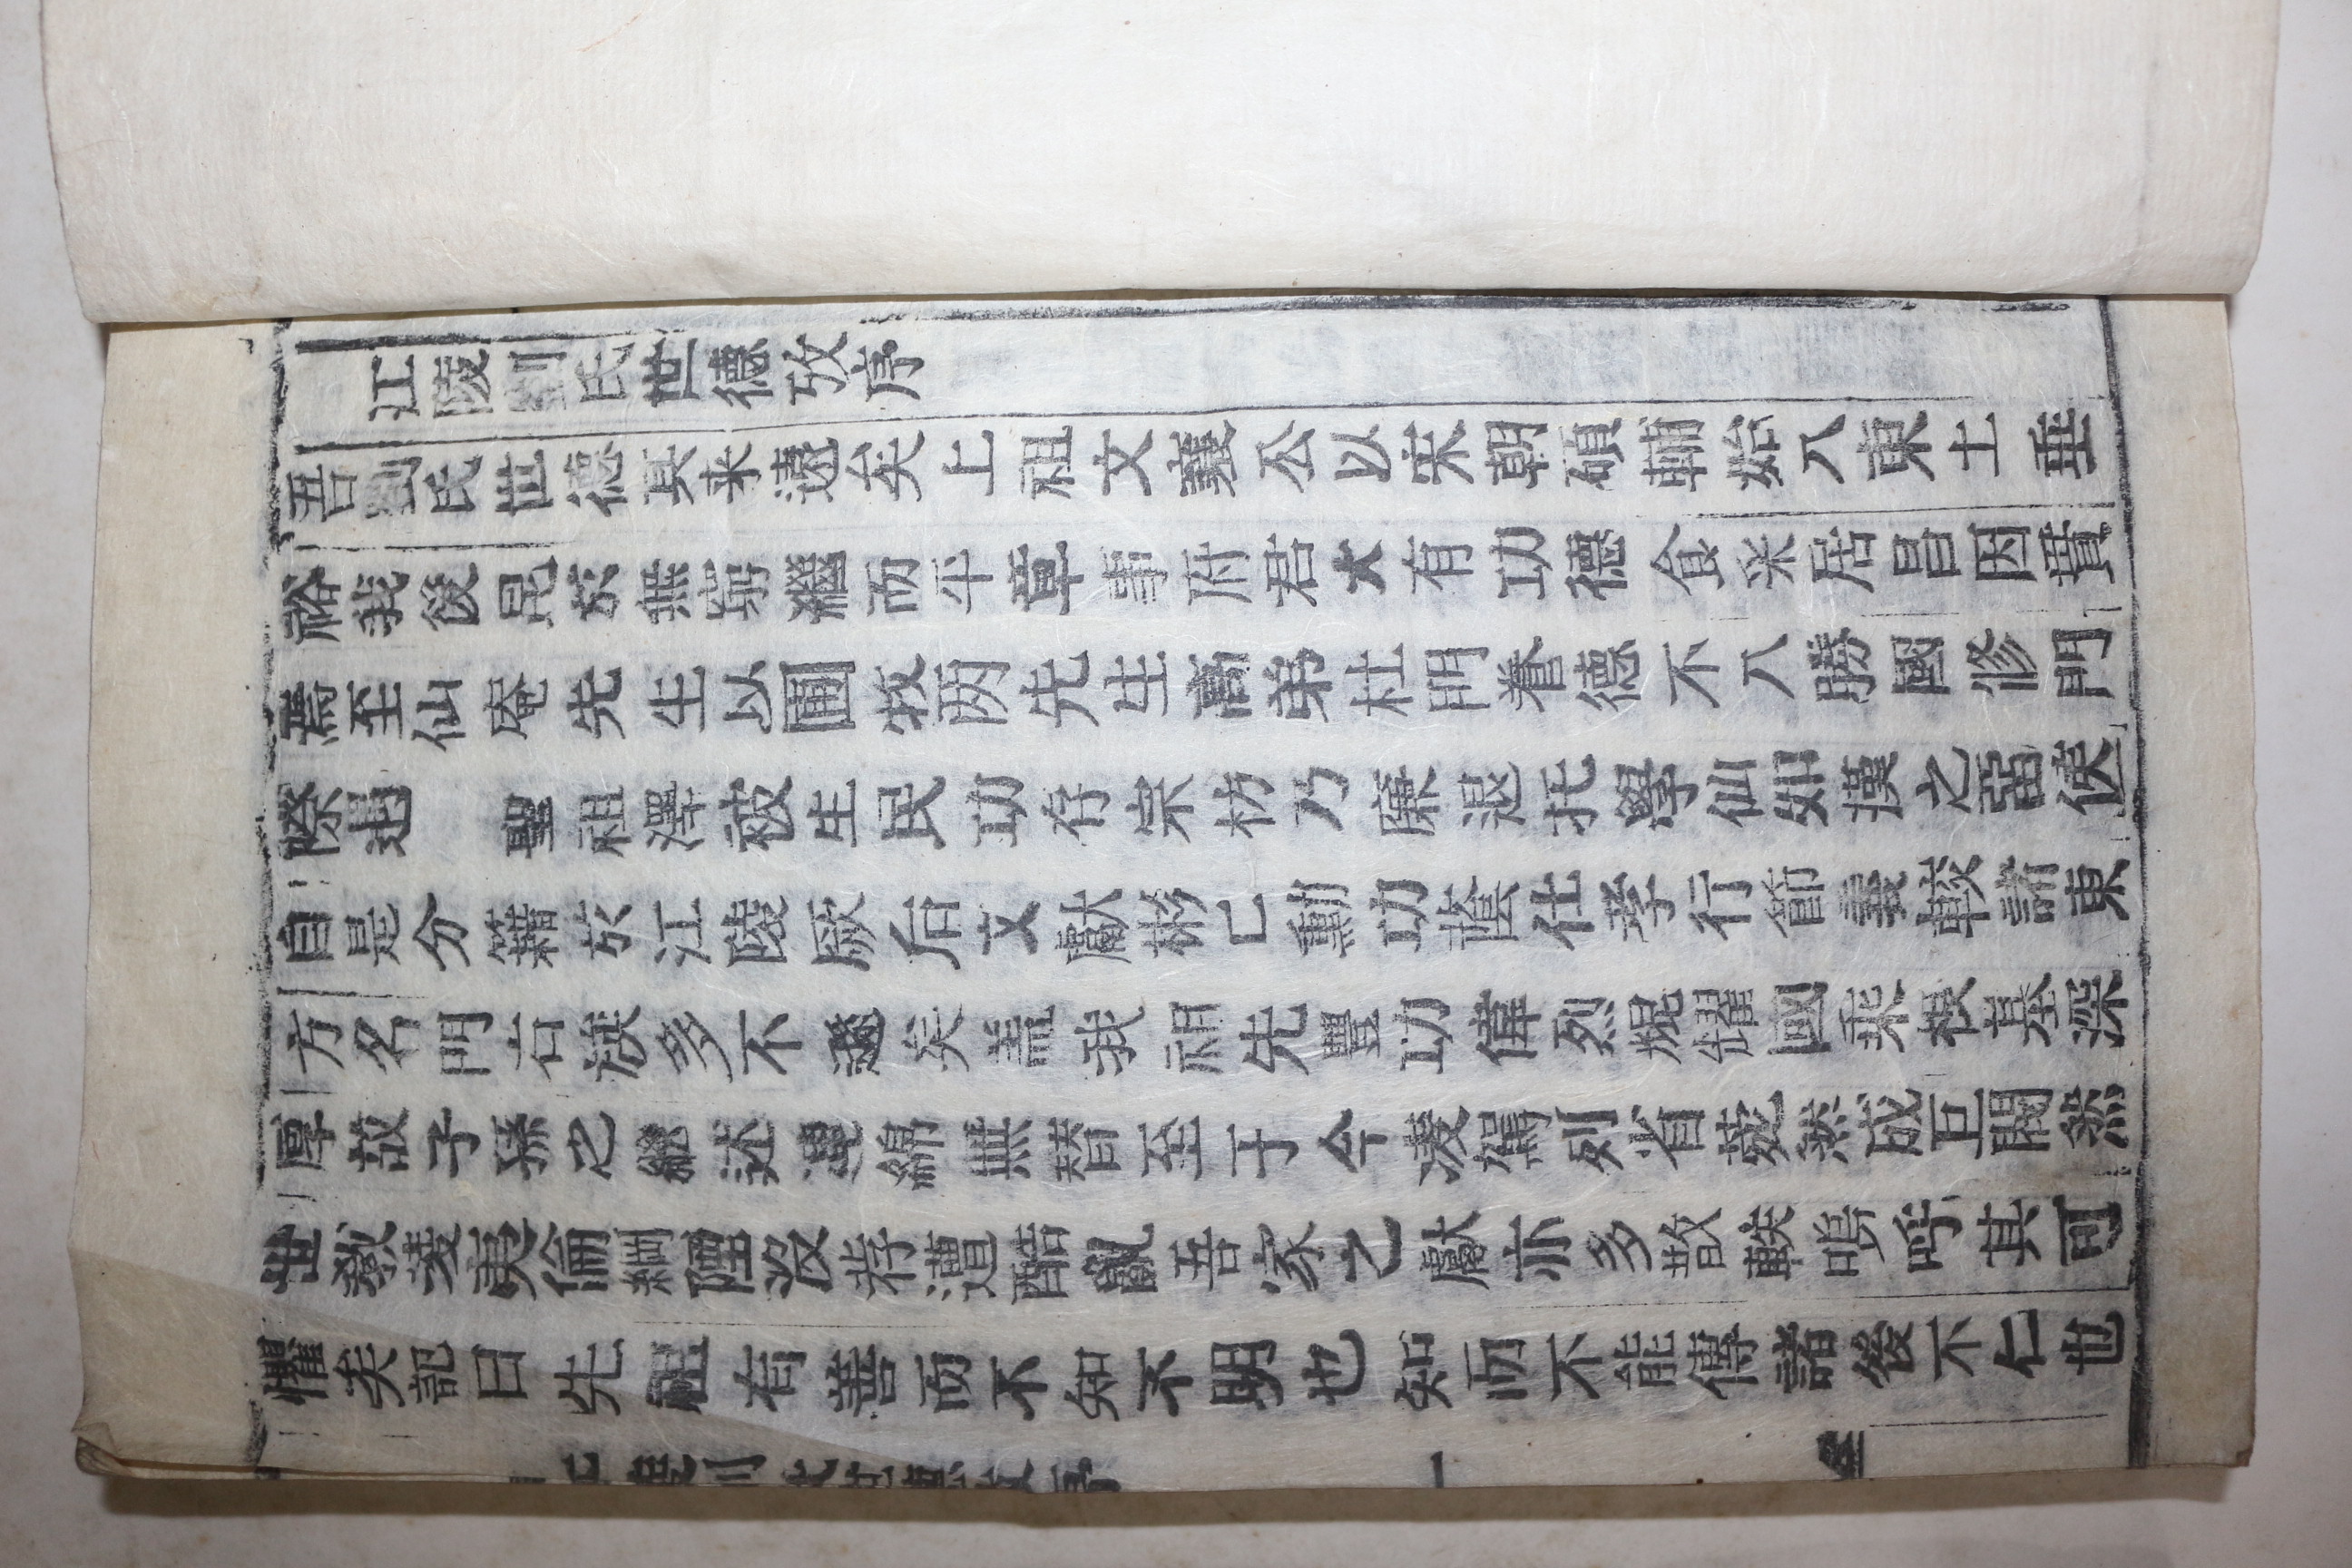 江陵劉氏世德攷序
吾劉氏世德其来遠矣上祖文襄公以宋朝碩輔始入東土垂
裕我後昆於無窮繼而平章事府君大有功德食采居昌因貫
焉至仙庵先生以圃牧两先生高弟杜門養德不入勝國修門
際遇 聖祖澤被生民功存宗枋乃廉退托學仙如漢之畱侯
自是分籍於江陵厥后文獻彬匕勳功蔭仕孝行節義較諸東
方名門右族多不遜矣盖我祖先豐功偉烈焜耀國乘根基深
厚故子孫之繼述連綿無替至于今凌駕列省蔚然成巨閥然
世敎凌夷倫綱陻沒荐遭酷亂吾家之獻亦多散軼嗚呼其可
懼矣記曰先祖有善而不知不明也知而不能傳諸後不仁也
江陵劉氏世德攷序 一